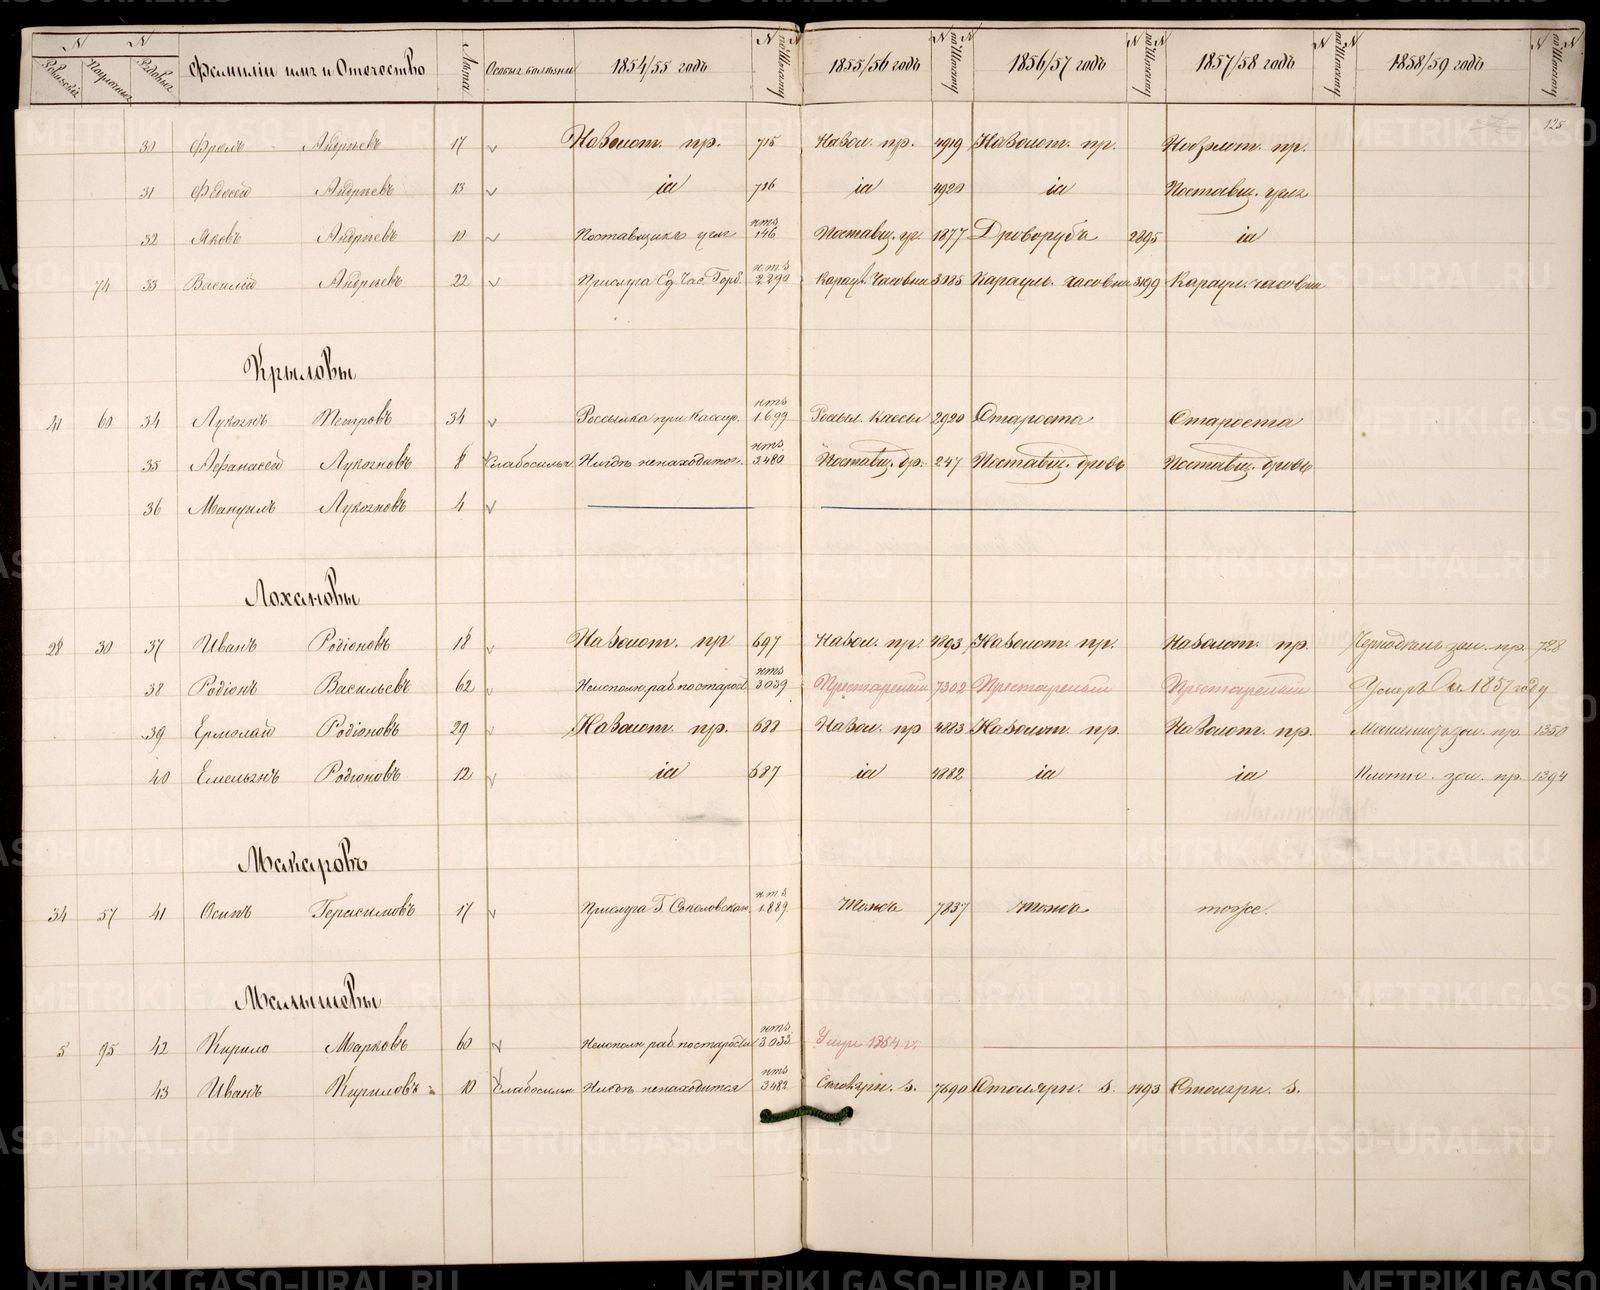 N N
Ревизскій Посемейный Рядовый Фамиліи имя и Отечество Лѣта Особыя болѣзни 1854/55 годъ N по Имянному 1855/56 годъ N по Имянному 1856/57 годъ N по Имянному 1857/58 годъ N по Имянному 1858/59 годъ N по Имянному
125
30 Фролъ Андреевъ 17 На золот. пр. 715 На зол. пр. 4919 На золот. пр. На золот. пр.
31 Федосей Андреевъ 13 id 716 id 4920 id Поставщ. угля
32 Яковъ Андреевъ 10 Поставщикъ угля 146 Поставщ. уг. 1877 Дроворубъ 2895 id
74 33 Василій Андреевъ 22 Прислуга 2290 Караул. часовни 3985 Карауль. часовни 3199 Караул. часовни
Крыловы
41 60 34 Лукоянъ Петровъ 34 Розсылка при Кассир. 1699 Розсыл. Кассы 2920 Староста Староста
35 Афанасей Лукояновъ 8 Слабосильн. Нигдѣ ненаходится 3480 Поставщ. др. 247 Поставщ. дровъ Поставщ. дровъ
36 Мануилъ Лукояновъ 4
Лохановы
28 30 37 Иванъ Родіоновъ 18 На золот. пр. 697 На зол. пр. 4893 На золот. пр. На золот. пр. зол. пр. 728
38 Родіонъ Васильевъ 62 Неисполн. раб. по старост. 3039 Престарелый 7302 Престарелый Престарелый Умеръ въ 1857 году
39 Ермолай Родіоновъ 29 На золот. пр. 688 На зол. пр 4883 На золот. пр. На золот. пр. зол. пр. 1350
40 Емельянъ Родіоновъ 12 id 687 id 4882 id id Плотн. зол. пр. 1394
Макаровъ
34 57 41 Осипъ Герасимовъ 17 Прислуга Г. Соколовскаго 1889 Тоже 7837 Тоже тоже.
Малышевы
5 95 42 Кирило Марковъ 60 Неисполн. раб. по старости 3033 Умеръ 1854 г.
43 Иванъ Кириловъ 10 Слабосильн. Нигдѣ ненаходится 3482 Столярн. з. 7690 Столярн. з. 1493 Столярн. з.
METRIKI.GASO-URAL.RU